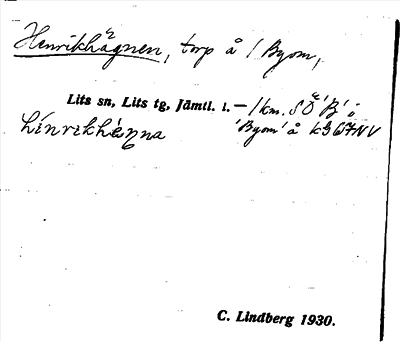 Henrikhägnen, torp å / Byom,
Lits sn, Lits tg, Jämtl. l. — 1 km. SÖ 'B' i
hínrikhäŋna 'Byom' å k3 67 NV
C. Lindberg 1930.